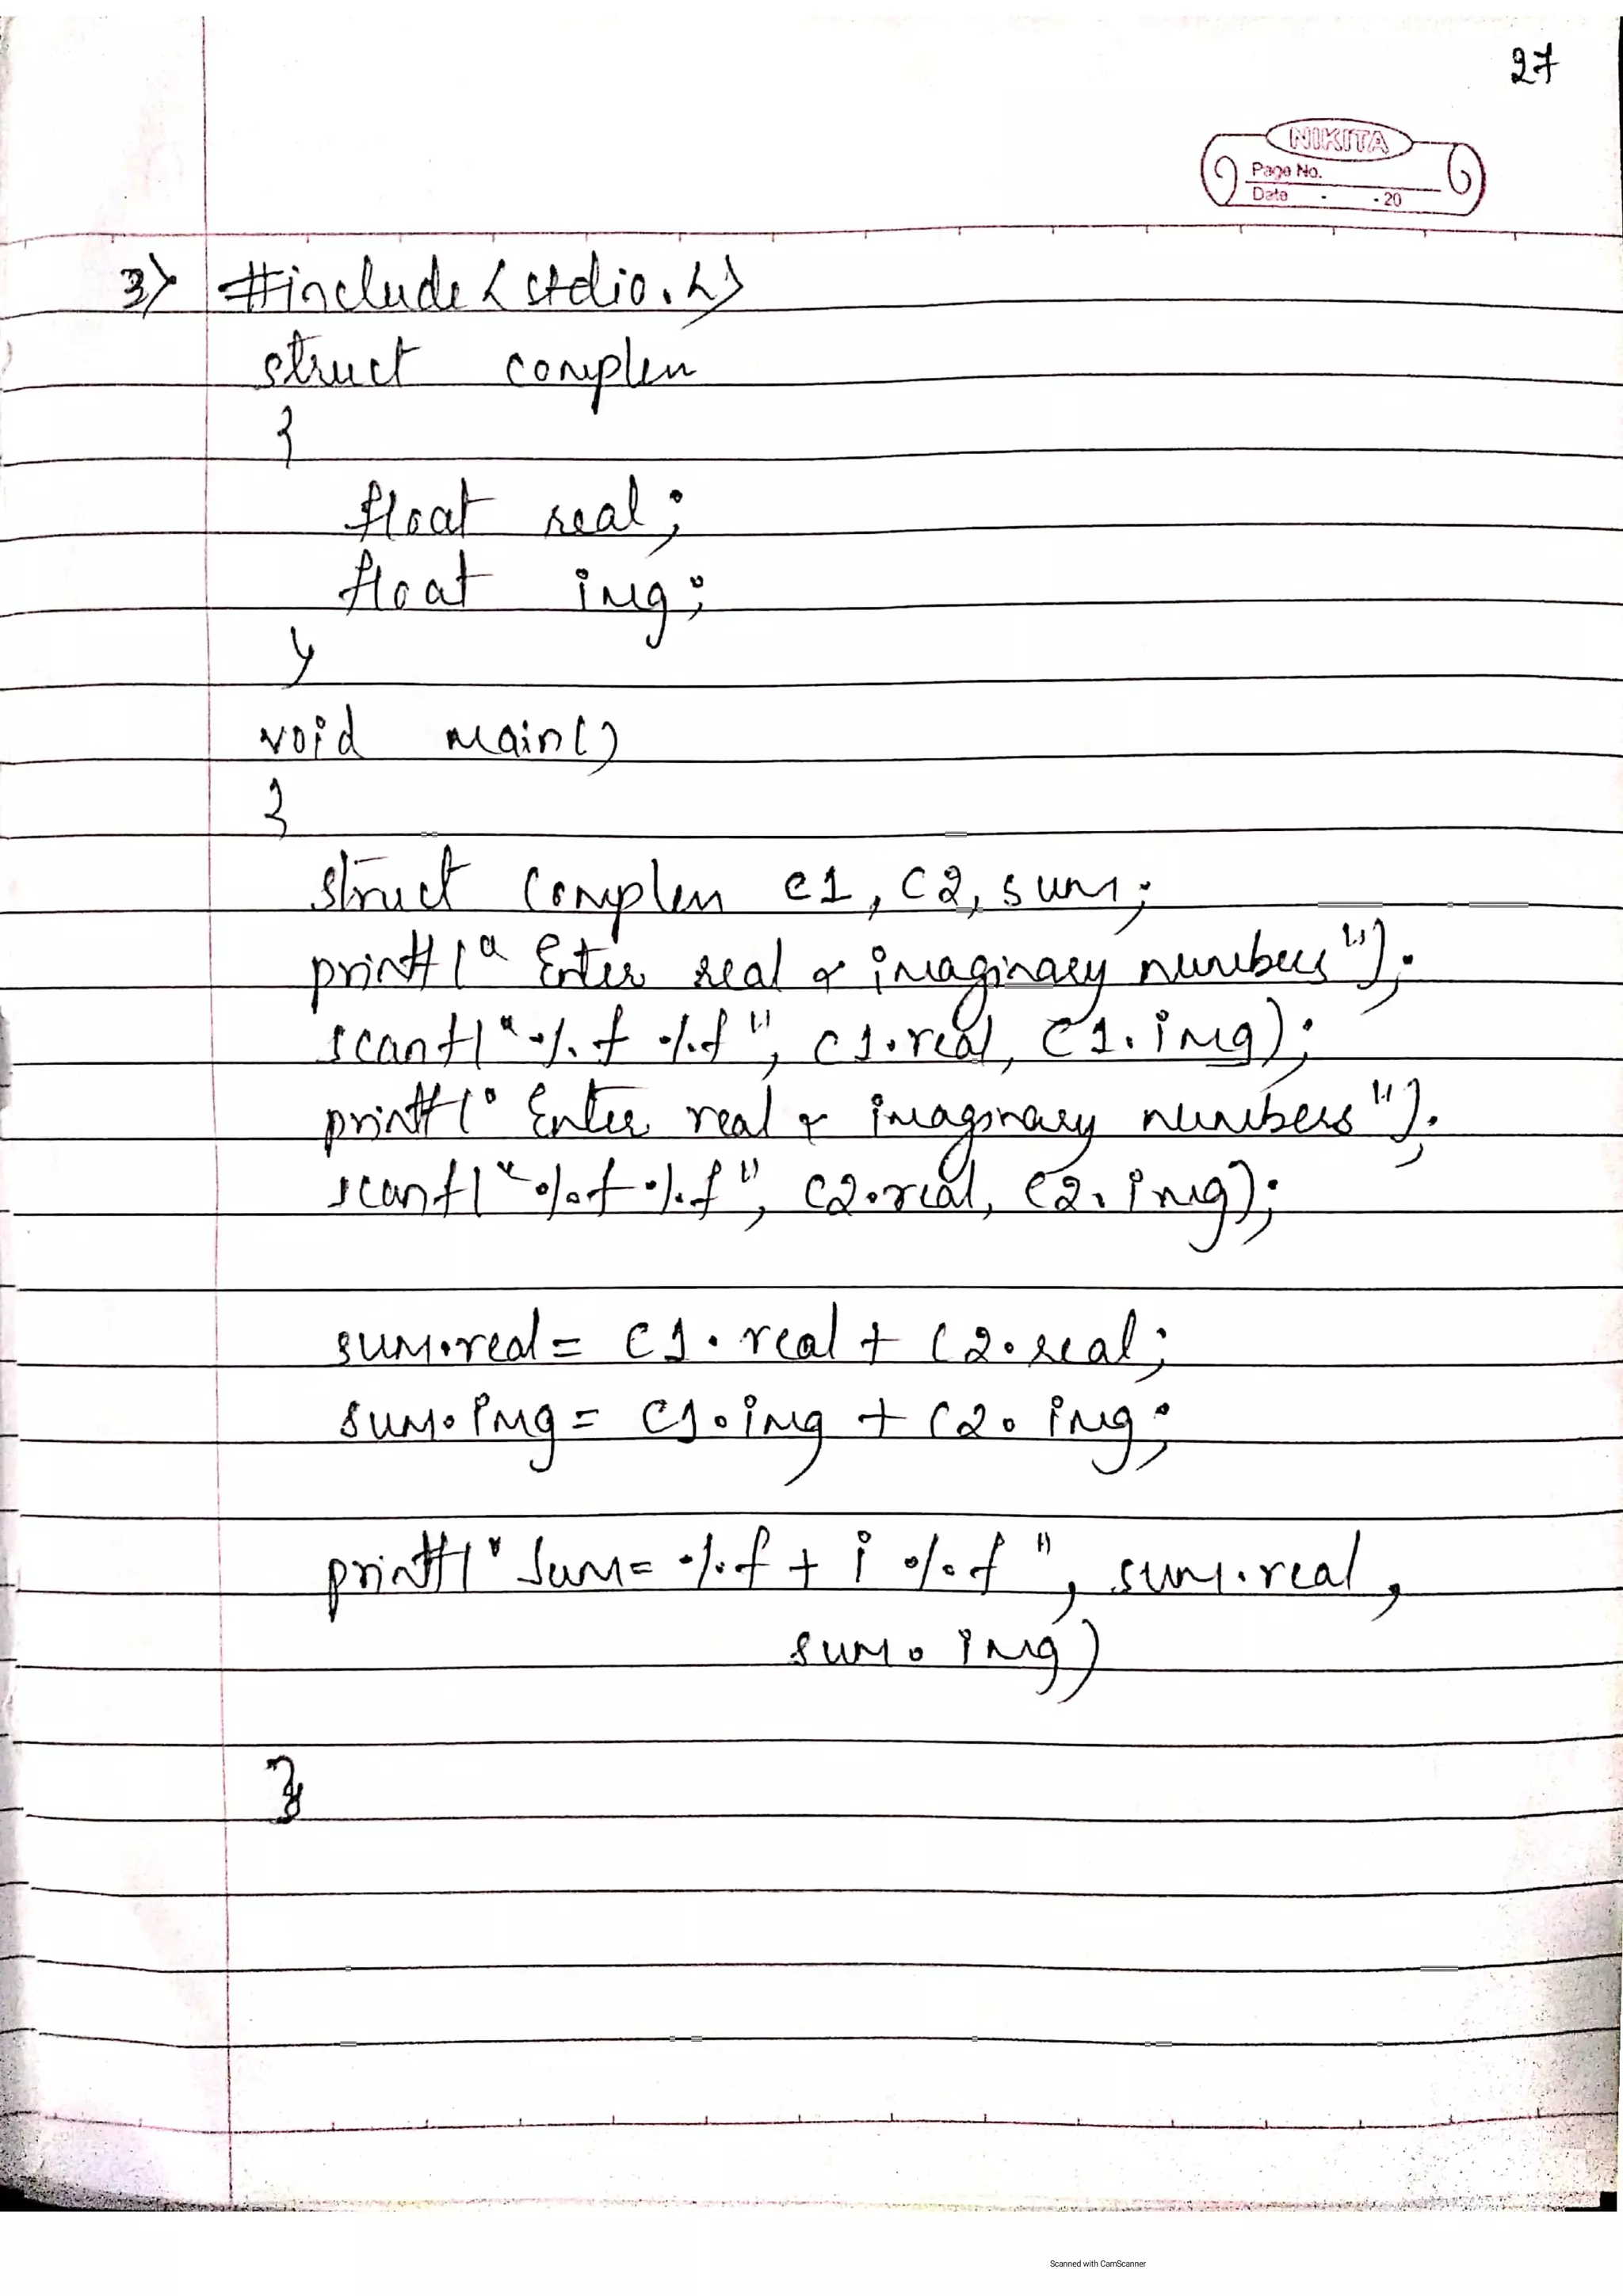 27
NIKITA
Page No.
Date - - 20
3) #include <stdio.h>
struct complex
{
float real;
float img;
}
void main()
{
struct complex c1, c2, sum;
printf(" Enter real & imaginary numbers");
scanf("%f %f", c1.real, c1.img);
printf(" Enter real & imaginary numbers");
scanf("%f %f", c2.real, c2.img);
sum.real = c1.real + c2.real;
sum.img = c1.img + c2.img;
printf("Sum= %f + i %f", sum.real,
sum.img)
}
Scanned with CamScanner